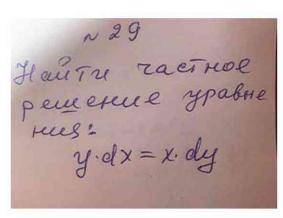 № 29
Найти частное
решение уравне
ния:
y·dx = x·dy